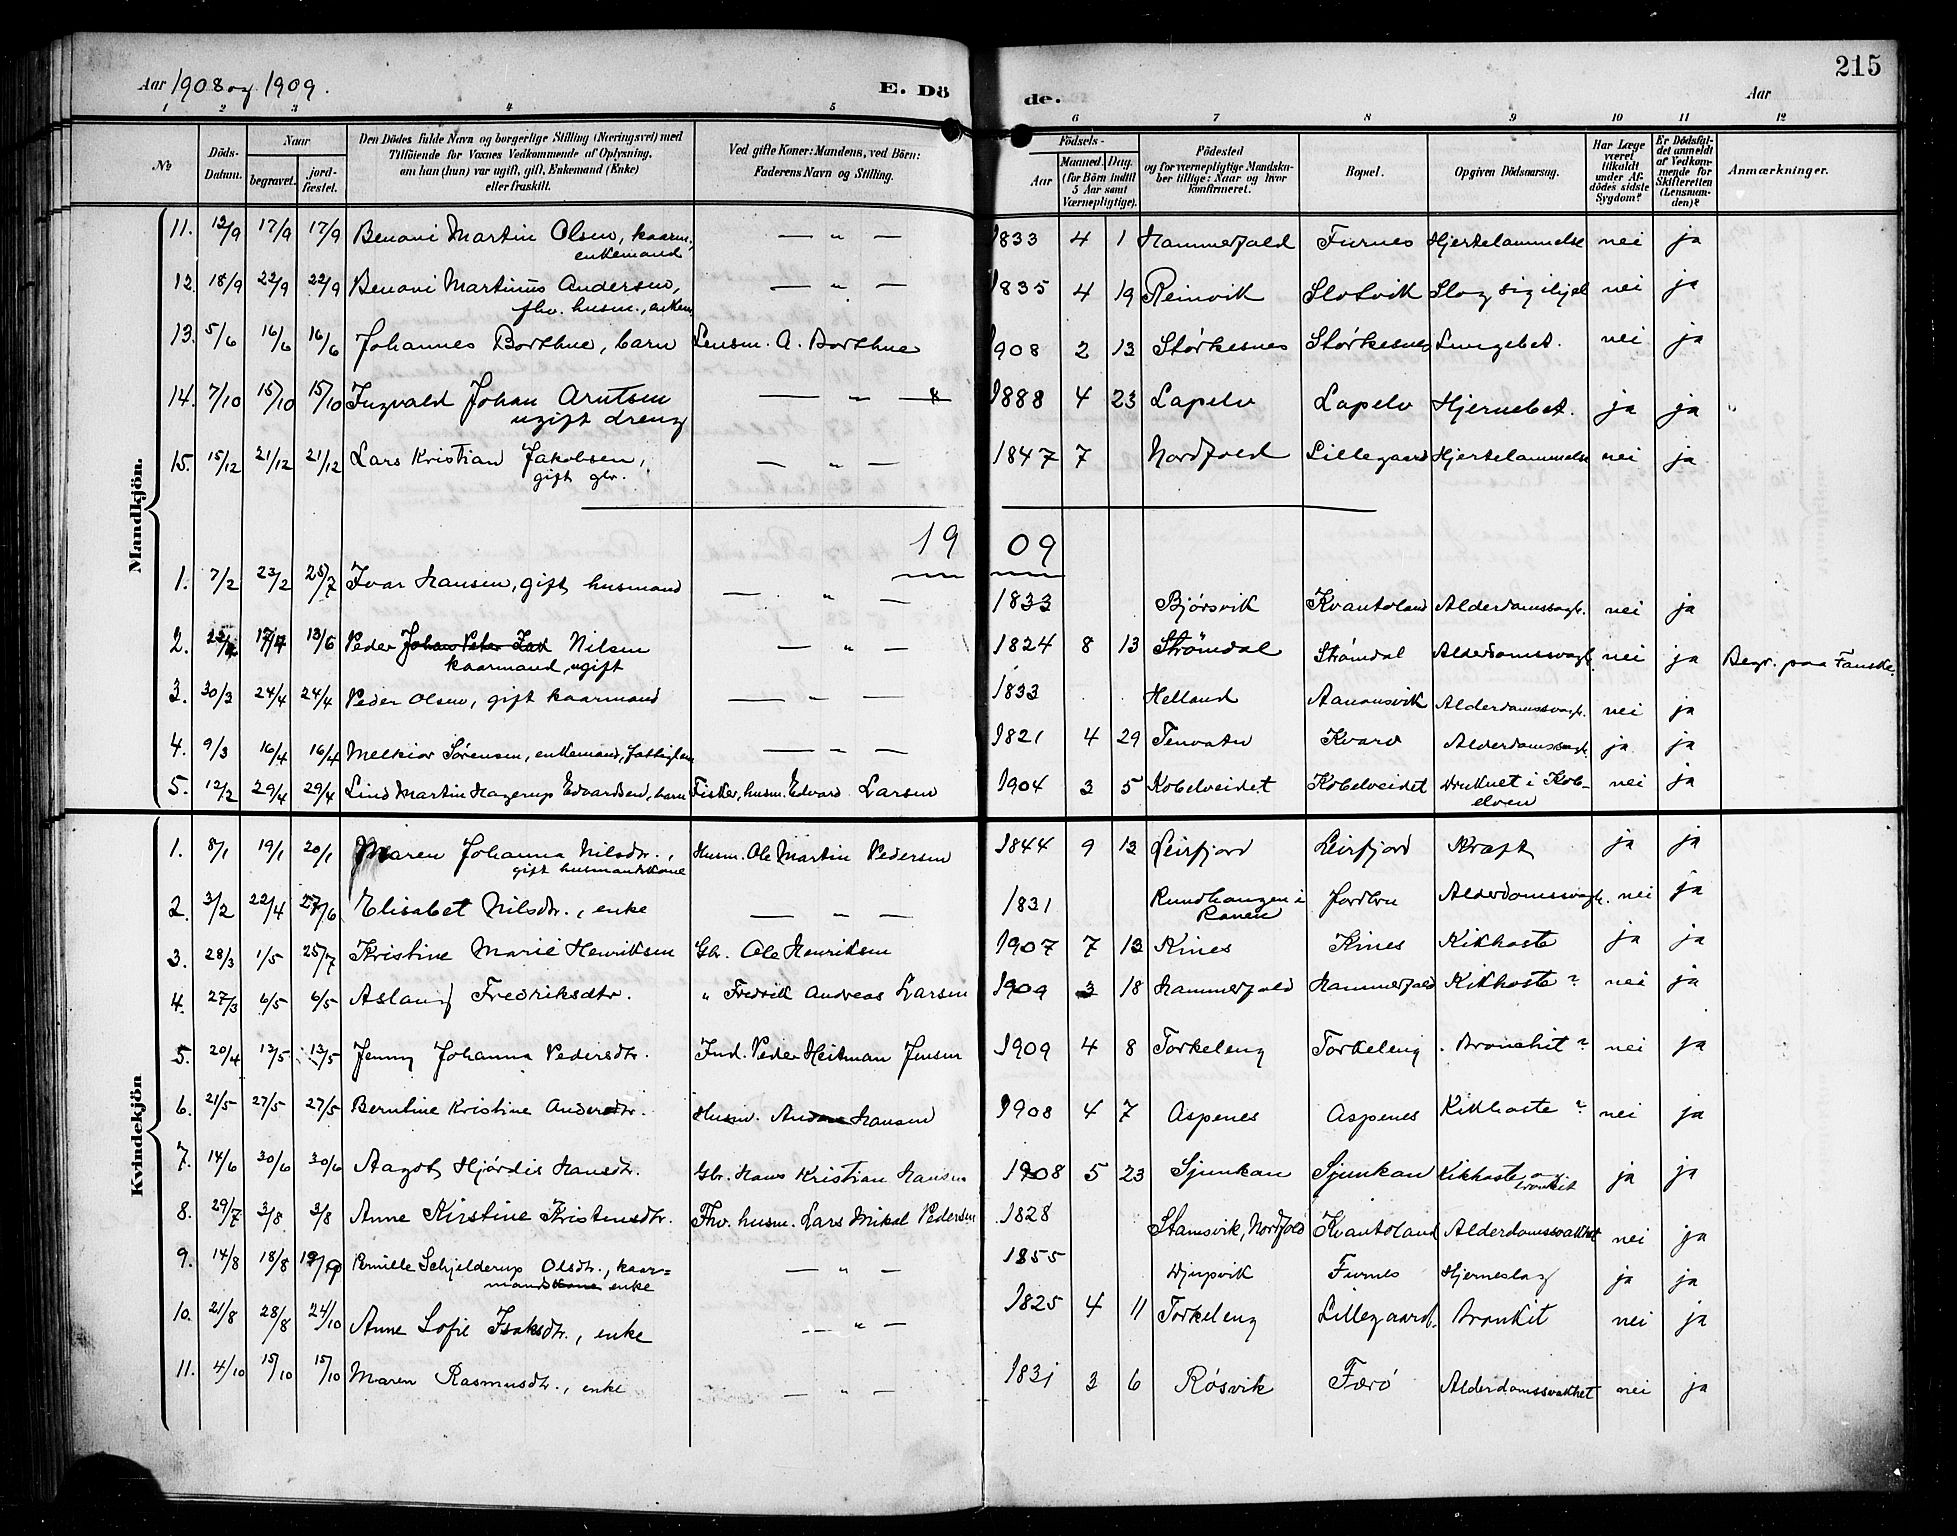 Aar 1908 og 1909.
E. Dö
de.
Aar
215
1 2 3 4 5 6 7 8 9 10 11 12
No
Döds-Datum.
Naar
begravet.
jord-fæstet.
Den Dödes fulde Navn og borgerlige Stilling (Næringsvei) med
Tilföiende for Voxnes Vedkommende af Oplysning,
om han (hun) var ugift, gift, Enkemand (Enke)
eller fraskilt.
Ved gifte Koner: Mandens, ved Börn:
Faderens Navn og Stilling.
Födsels-
Aar
Maaned. Dag.
(for Börn indtil
5 Aar samt
Værnepligtige).
Födested
og for værnepligtige Mandska-
ber tillige: Naar og hvor
konfirmeret.
Bopæl.
Opgiven Dödsaarsag.
Har Læge
været
tilkaldt
under Af-
dödes sidste
Sygdom?
Er Dödsfal-
det anmeldt
af Vedkom-
mende for
Skifteretten
(Lensman-
den)?
Anmærkninger.
Mandkjön.
11. 12/9 17/9 17/9 Benoni Martin Olsen, kaarm., — „ — 1833 4 1 Hammerfald Furnes Hjertelammelse nei ja
enkemand
12. 18/9 22/9 22/9 Benoni Martinus Andersen, — „ — 1835 4 19 Reinvik Slotvik Slog sig ihjel nei ja
fhv. husm., enkem.
13. 5/6 16/6 16/6 Johannes Borthne, barn Lensm. A. Borthne 1908 2 13 Størkesnes Størkesnes Lungebet. nei ja
14. 7/10 15/10 15/10 Ingvald Johan Arntsen — „ — 1888 4 23 Lapelv Lapelv Hjernebet. ja ja
ugift dreng
15. 15/12 21/12 21/12 Lars Kristian Jakobsen, — „ — 1847 7 Nordfold Lillegaard Hjertelammelse nei ja
gift gbr.
19 09
1. 7/2 23/2 25/7 Ivar Hansen, gift husmand — „ — 1833 Bjørsvik Kvantoland Alderdomssvagh. nei ja
2. 13/6 Peder Nilsen — „ — 1824 8 13 Strømdal Strømdal Alderdomssvagh. nei ja Begr. paa Fauske.
kaarmand, ugift
3. 30/3 24/4 24/4 Peder Olsen, gift kaarmand — „ — 1833 Helland Aanonsvik Alderdomssvagh. nei ja
4. 9/3 16/4 16/4 Melkior Sørensen, enkemand, fattiglem — „ — 1821 4 29 Tenvatn Kvarv Alderdomssvagh. ja ja
5. 12/2 29/4 29/4 Lind Martin Hagerup Edvardsen, barn Fisker, husm. Edvard Larsen 1904 3 5 Kobelveidet Kobelveidet Druknet i Kob- nei ja
elven
Kvindekjön
1. 8/1 19/1 20/1 Maren Johanna Nilsdtr., Husm. Ole Martin Pedersen 1844 9 13 Leirfjord Leirfjord Kræft ja ja
gift husmandskone
2. 3/2 22/4 27/6 Elisabet Nilsdtr., enke — „ — 1831 Rundhaugen i Jordbru Alderdomssvagh. nei ja
Ranen
3. 28/3 1/5 25/7 Kristine Marie Henriksen Gbr. Ole Henriksen 1907 7 13 Kines Kines Kikhoste ja ja
4. 27/3 6/5 6/5 Aslaug Fredriksdtr. „ Fredrik Andreas Larsen 1909 3 18 Hammerfald Hammerfald Kikhoste ? nei ja
5. 20/4 13/5 13/5 Jenny Johanna Pedersdtr. Ind. Peder Heitman Jensen 1909 4 8 Torkeleng Torkeleng Bronchit ? nei ja
6. 21/5 27/5 27/5 Berntine Kristine Andersdtr. Husm. Anders Hansen 1908 4 7 Aspenes Aspenes Kikhoste ? nei ja
7. 14/6 30/6 30/6 Aagot Hjørdis Hansdtr. Gbr. Hans Kristian Hansen 1908 5 23 Sjunkan Sjunkan Kikhoste og ja ja
bronkit
8. 29/7 3/8 3/8 Anne Kirstine Kristensdtr. Fhv. husm. Lars Mikal Pedersen 1828 Stamsvik, Nordfold Kvantoland Alderdomssvakhet nei ja
9. 14/8 18/8 Pernille Schjelderup Olsdtr., kaar= — „ — 1855 Djupvik Furnes Hjerneslag ja ja
mandskone enke
10. 21/8 28/8 24/10 Anne Sofie Isaksdtr., enke — „ — 1825 4 11 Torkeleng Lillegaard. Bronkit nei ja
11. 4/10 15/10 15/10 Maren Rasmusdtr., enke — „ — 1831 3 6 Røsvik Færø Alderdomssvakhet nei ja